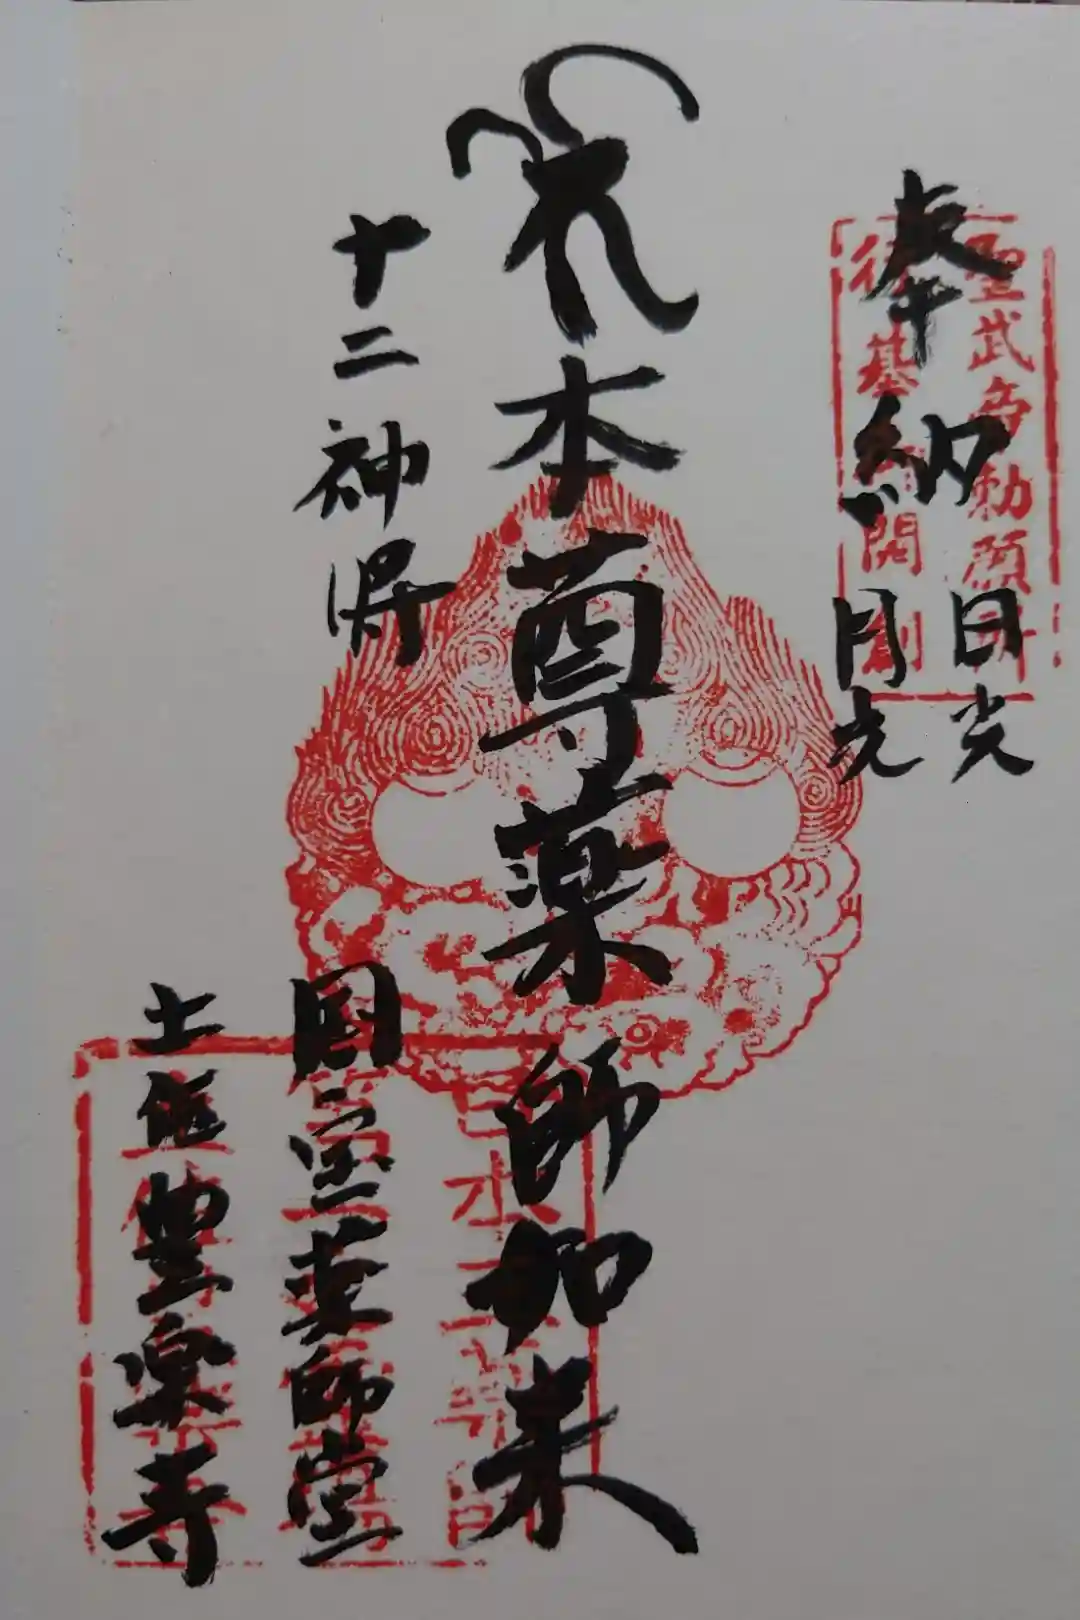 奉納
日光
月光
本尊薬師如来
十二神将
国宝薬師堂
土佐豊楽寺
聖武帝勅願所
開創